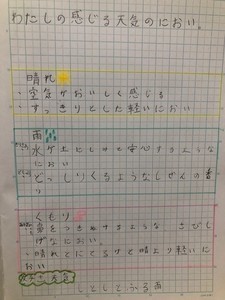 わたしの感じる天気のにおい。
晴れ
・空気がおいしく感じる
・すっきりとした軽いにおい
雨
水が上にしみて安心するような
におい
どっしりくるようなしぜんの香
り
くもり
鼻をつきぬけるような さびし
げなにおい。
・晴れとにてるけど晴より軽いに
おい
しとしとふる雨